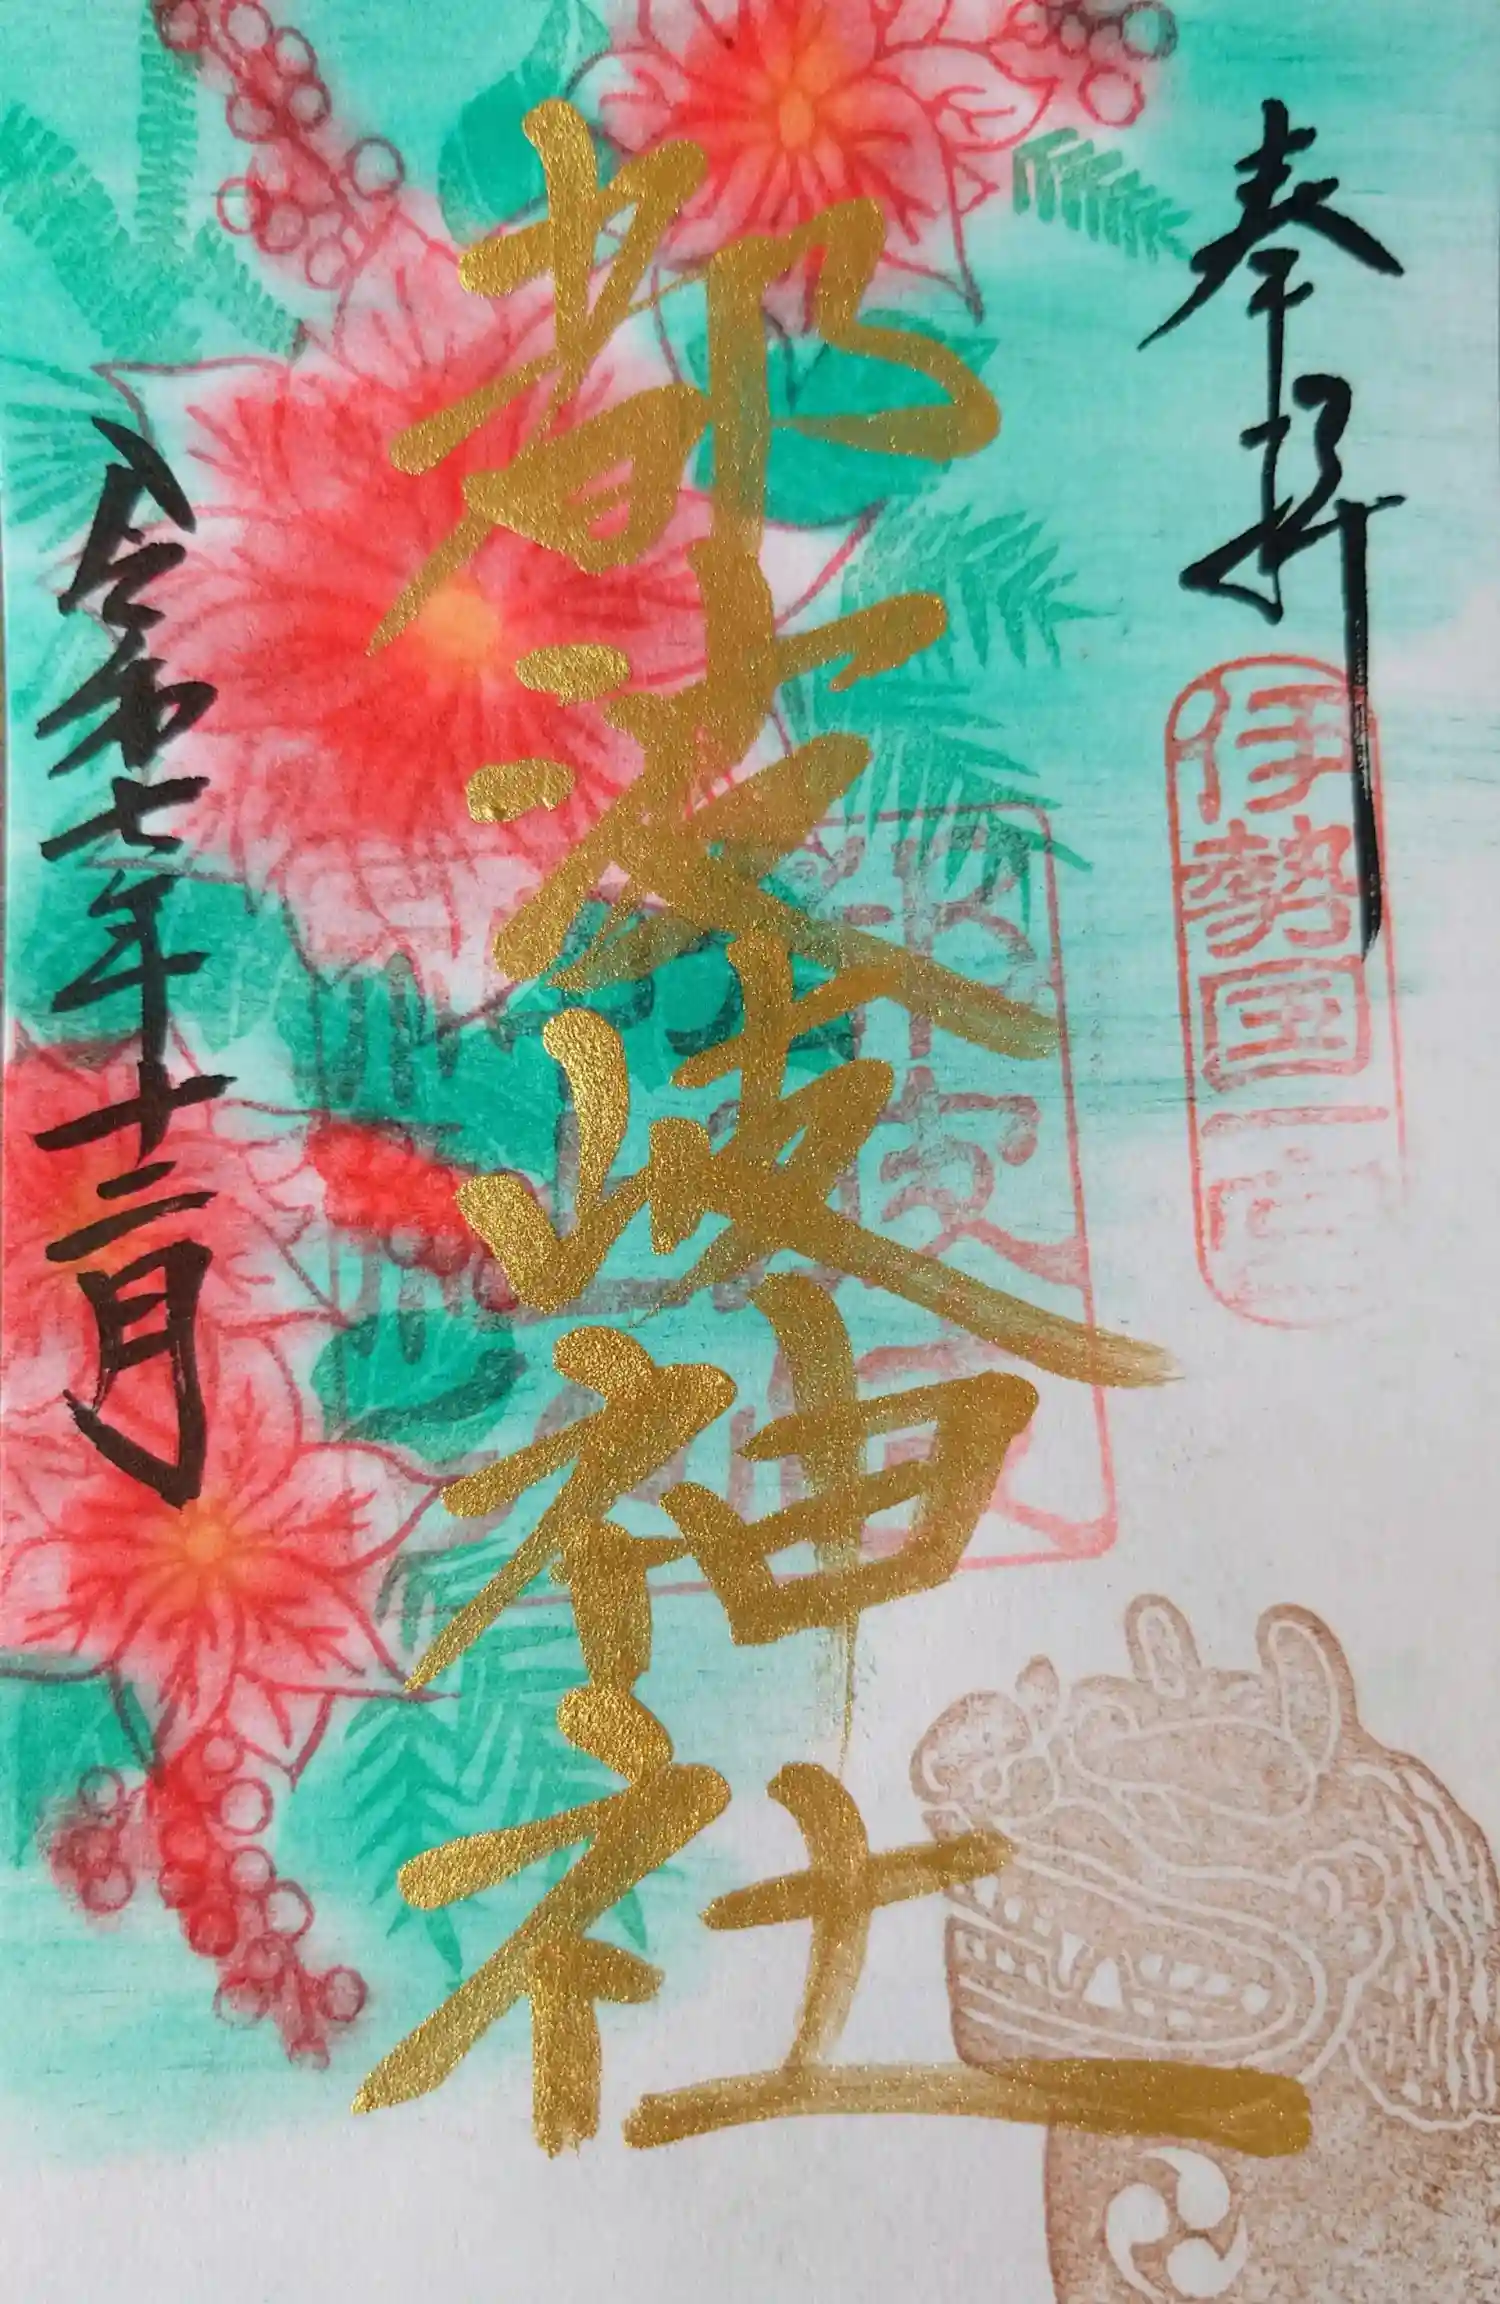 奉拝
伊勢国一宮
都波岐神社
令和七年十二月